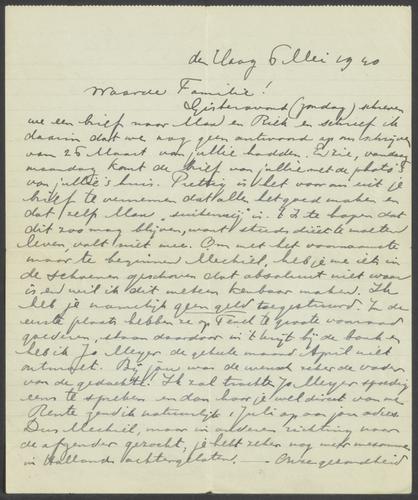 den Haag 6 Mei 1940
Waarde Familie!
Gisteravond (zondag) schreven
we een brief naar Max en Riek en schreef ik
daarin dat we nog geen antwoord op ons schrijven
van 26 Maart van jullie hadden. En zie, vandaag
maandag komt de brief van jullie met de photo's
van jullie's huis. Prettig is het voor ons uit je
brief te vernemen dat allen het goed maken en
dat zelf Max is. 't Is te hopen dat
dit zoo mag blijven, want steeds dieet te moeten
leven, valt niet mee. Om met het voornaamste
maar te beginnen Mechiel, heb je me iets in
de schoenen geschoven dat absoluut niet waar
is en wil ik dit meteen kenbaar maken. Ik
heb je namelijk geen geld toegestuurd. In de
eerste plaats hebben ze op te groote voorraad
goederen, staan daardoor in 't krijt bij de bank en
heb ik Jo Meyer de geheele maand April niet
ontmoet. Bij jou was de wensch zeker de vader
van de gedachte. Ik zal trachten Jo Meyer spoedig
eens te spreken en dan hoor je wel direct van me.
Rente zend ik natuurlijk 1 Juli op aan jou adres.
Dus Mechiel, maar in anderen richting naar
de afzender gezocht, je hebt zeker nog meer
in Holland achtergelaten. — Onze gezondheid